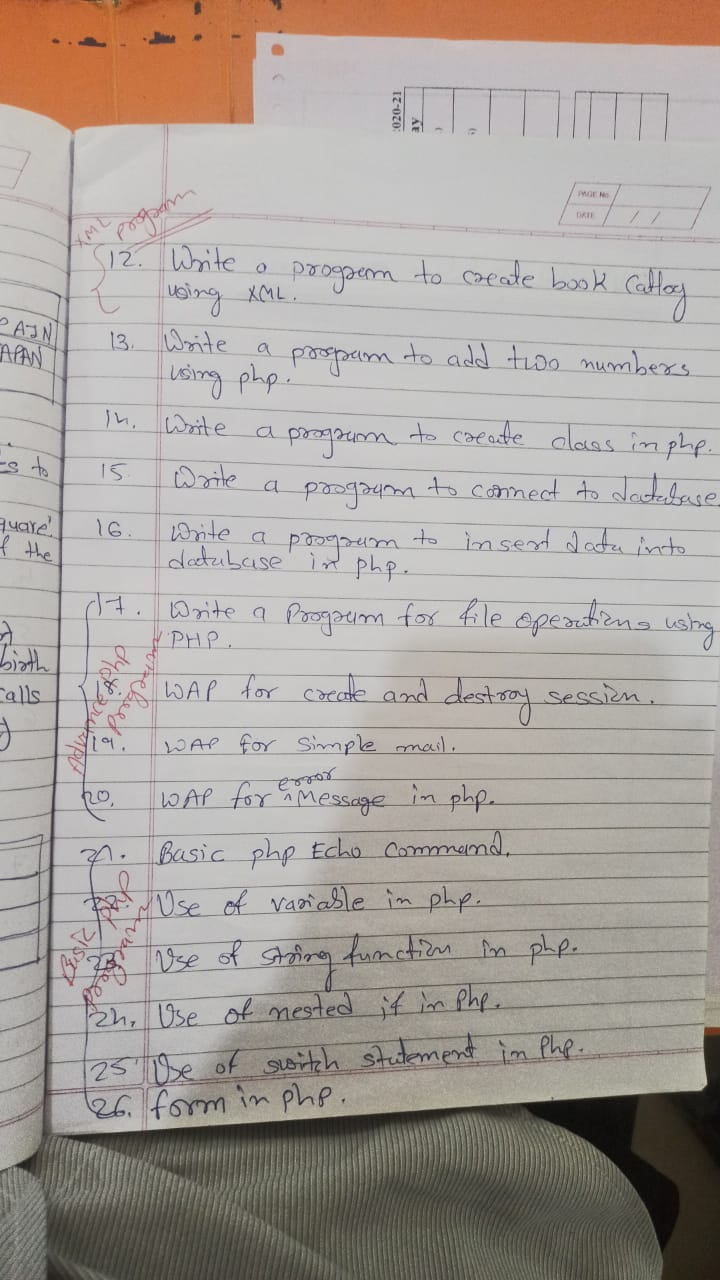 2020-21
PAGE No.
DATE / /
XML program
12. Write a program to create book Catlog
using XML.
13. Write a program to add two numbers
using php.
14. Write a program to create class in php.
15. Write a program to connect to database.
16. Write a program to insert data into
database in php.
17. Write a Program for file operations using
PHP.
18. WAP for create and destroy session.
19. WAP for simple mail.
error
20. WAP for ^ Message in php.
Advance php program
21. Basic php Echo Command.
22. Use of variable in php.
23. Use of string function in php.
24. Use of nested if in php.
25 Use of switch statement in Php.
26. form in php.
Basic php program
APAN
s to
quare'.
f the
birth
calls